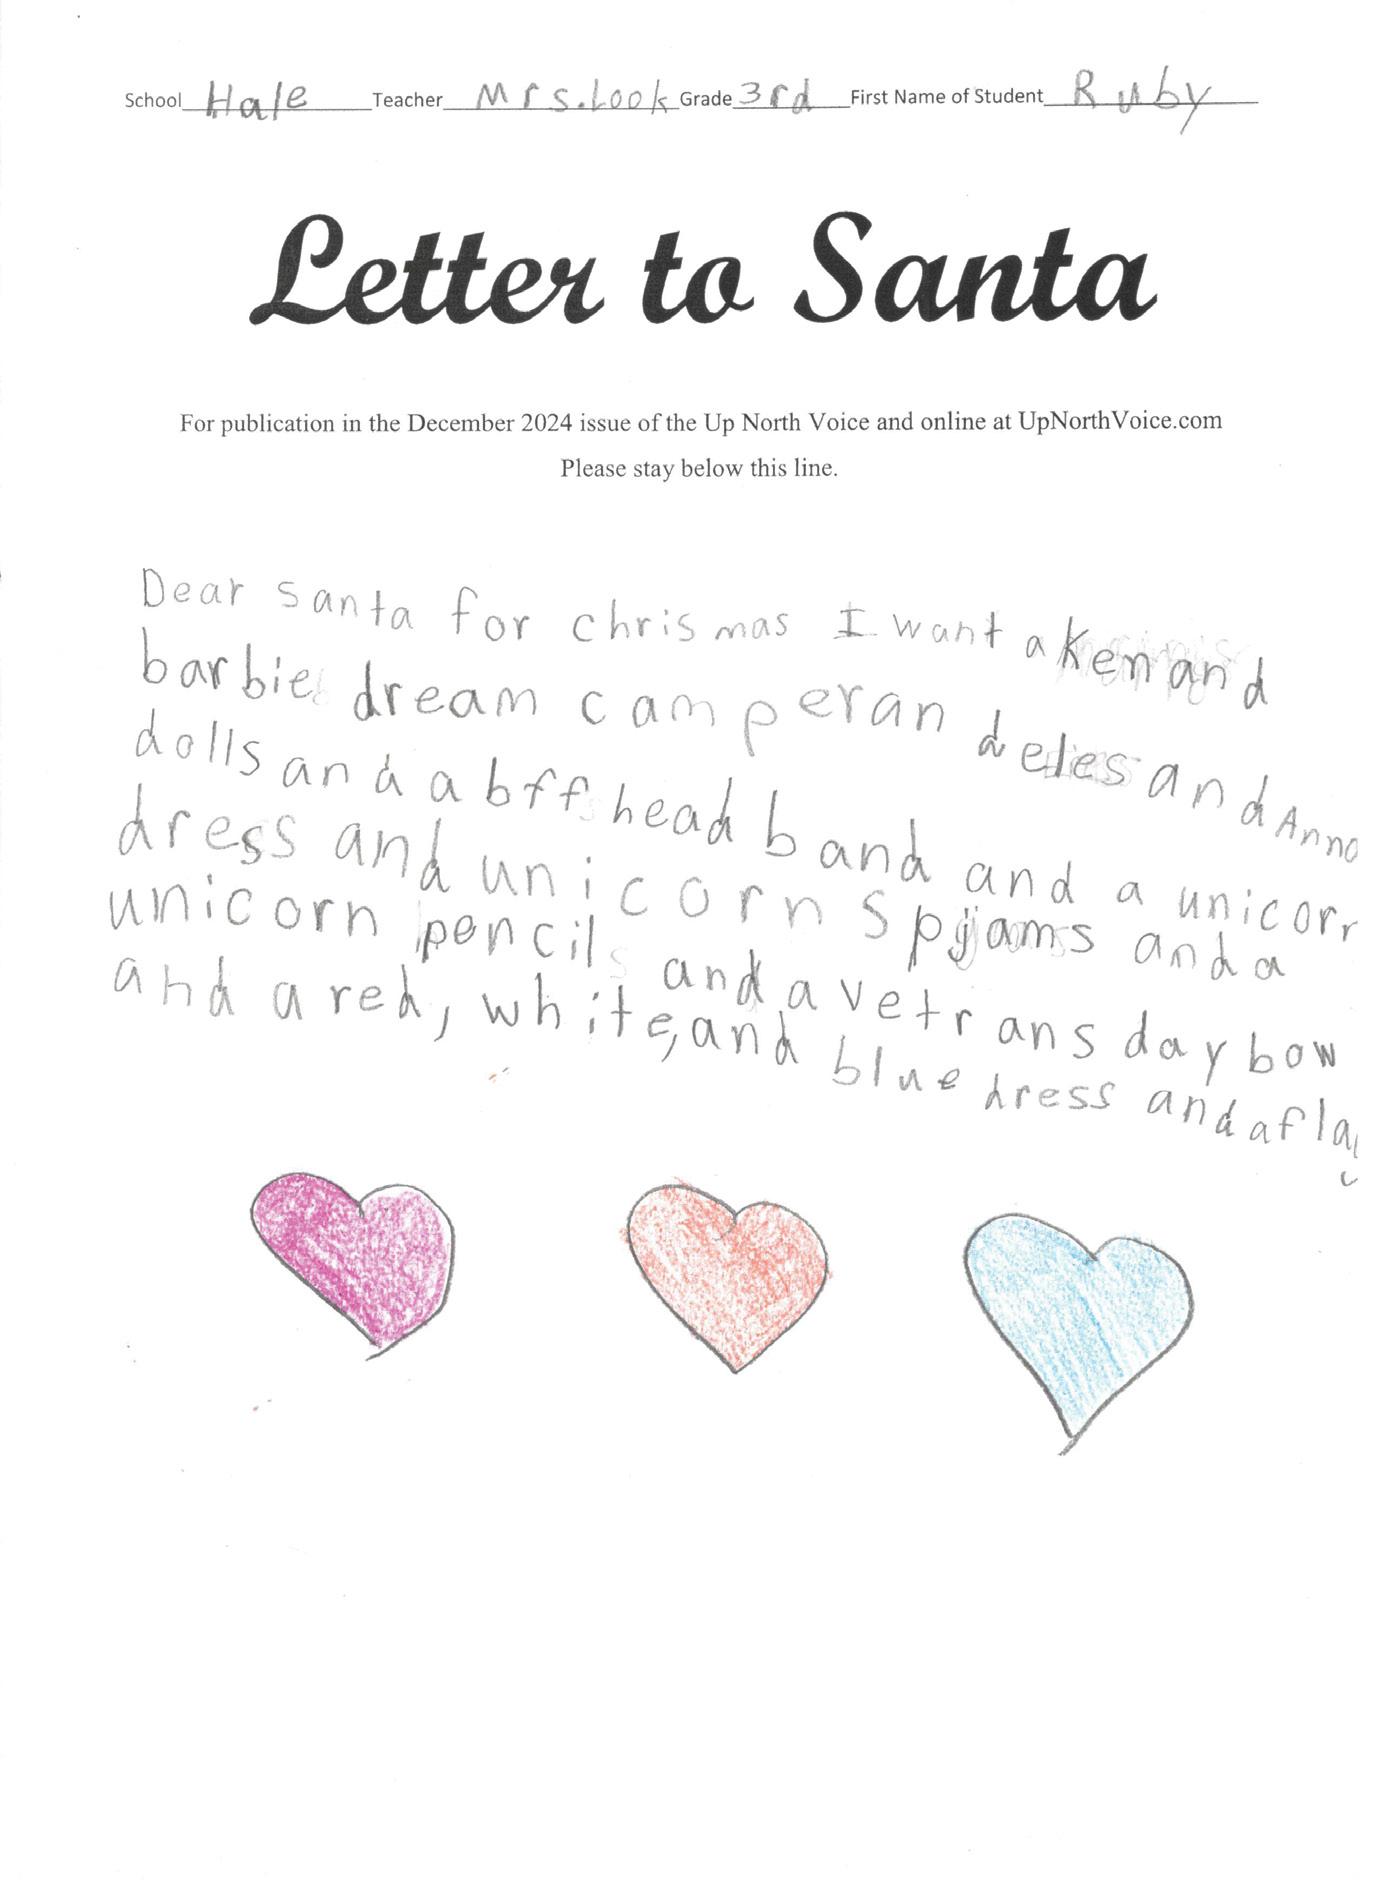 School Hale Teacher Mrs. Look Grade 3rd First Name of Student Ruby
Letter to Santa
For publication in the December 2024 issue of the Up North Voice and online at UpNorthVoice.com
Please stay below this line.
Dear santa for chrismas I want a Ken and
barbie dream camper an deles and Anna
dolls and a bff head band and a unicorn
dress and unicorns pjams and a
unicorn pencil and a vetrans day bow
and a red, white, and blue dress and a flag